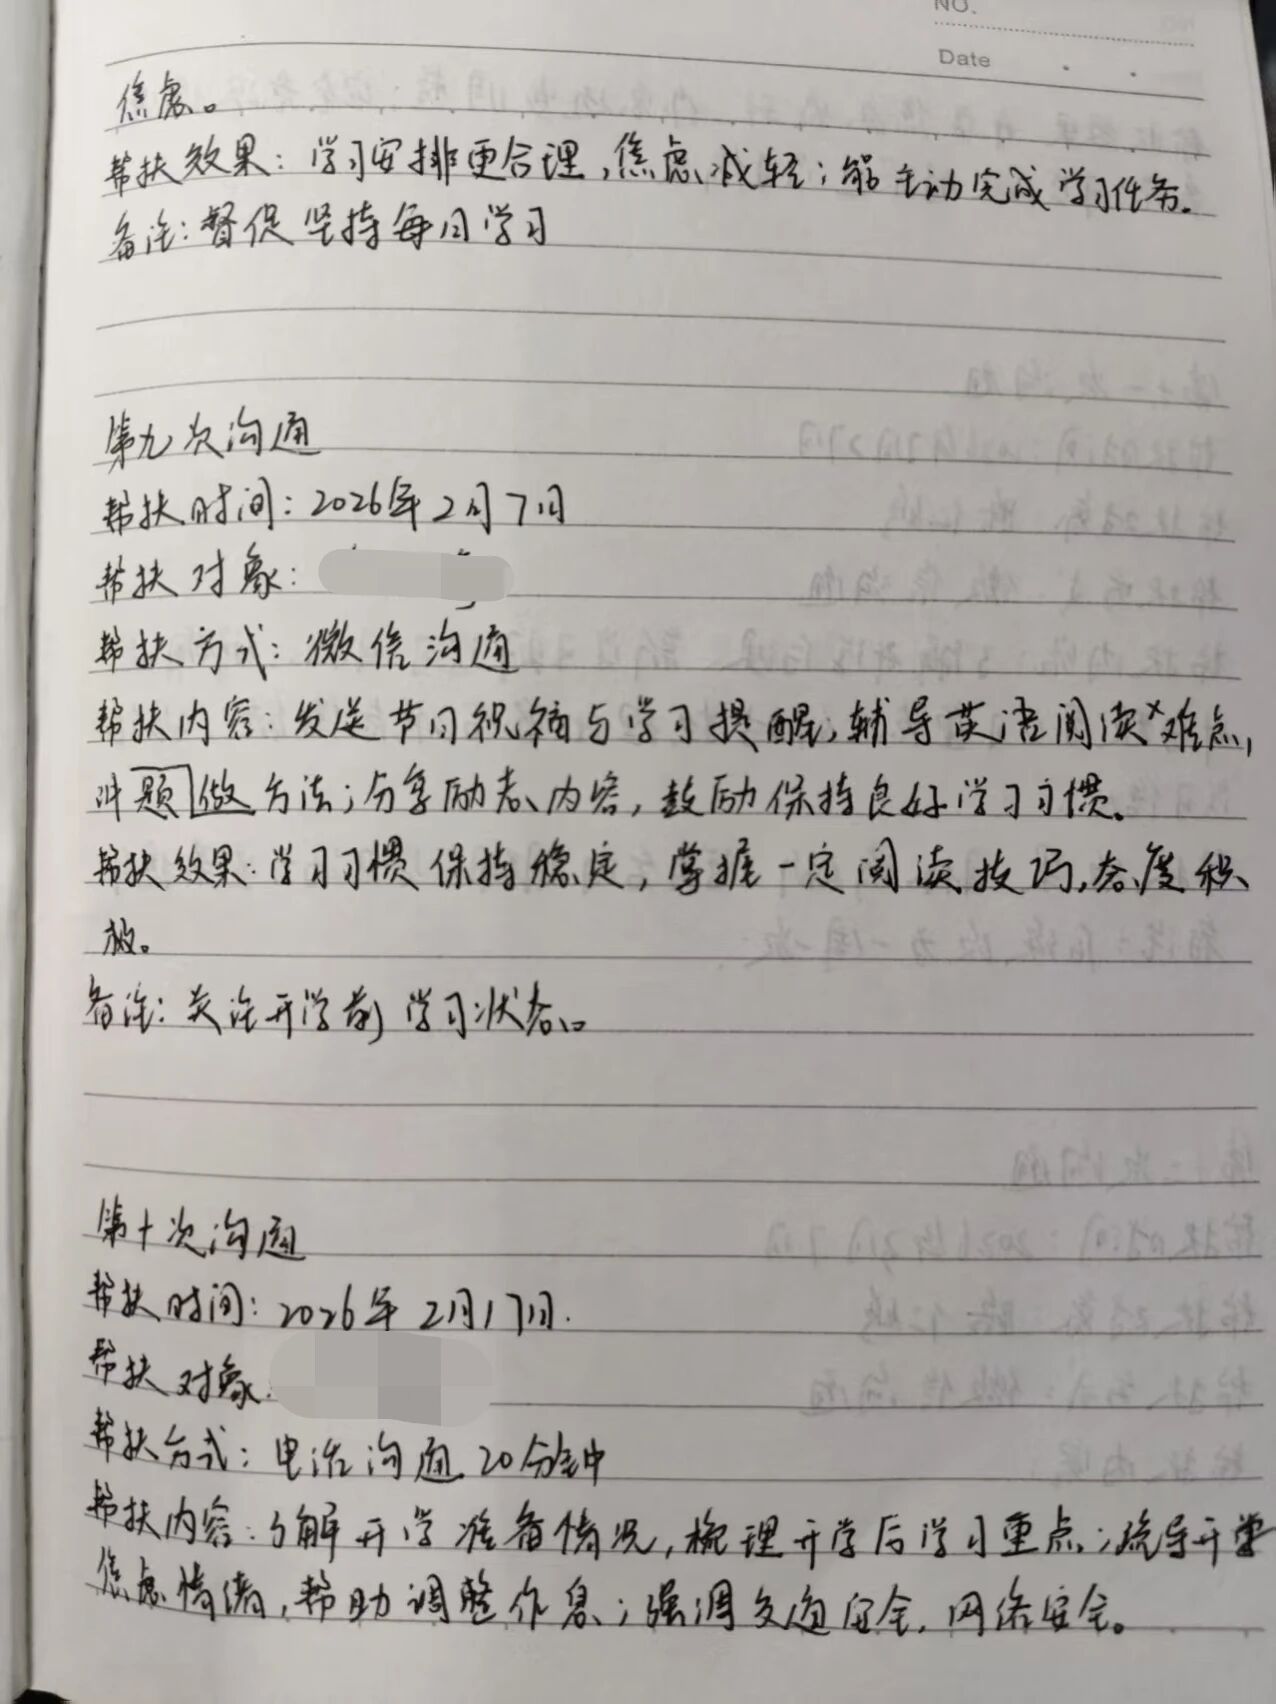 NO.
Date
焦虑。
帮扶效果：学习安排更合理，焦虑减轻；能主动完成学习任务。
备注：督促坚持每日学习
第九次沟通
帮扶时间：2026年2月7日
帮扶对象：
帮扶方式：微信沟通
帮扶内容：发送节日祝福与学习提醒；辅导英语阅读×难点，
讲题做方法；分享励志内容，鼓励保持良好学习习惯。
帮扶效果：学习习惯保持稳定，掌握一定阅读技巧，态度积
极。
备注：关注开学前学习状态。
第十次沟通
帮扶时间：2026年2月17日.
帮扶对象：
帮扶方式：电话沟通 20分钟
帮扶内容：了解开学准备情况，梳理开学后学习重点；疏导开学
焦虑情绪，帮助调整作息；强调交通安全，网络安全。